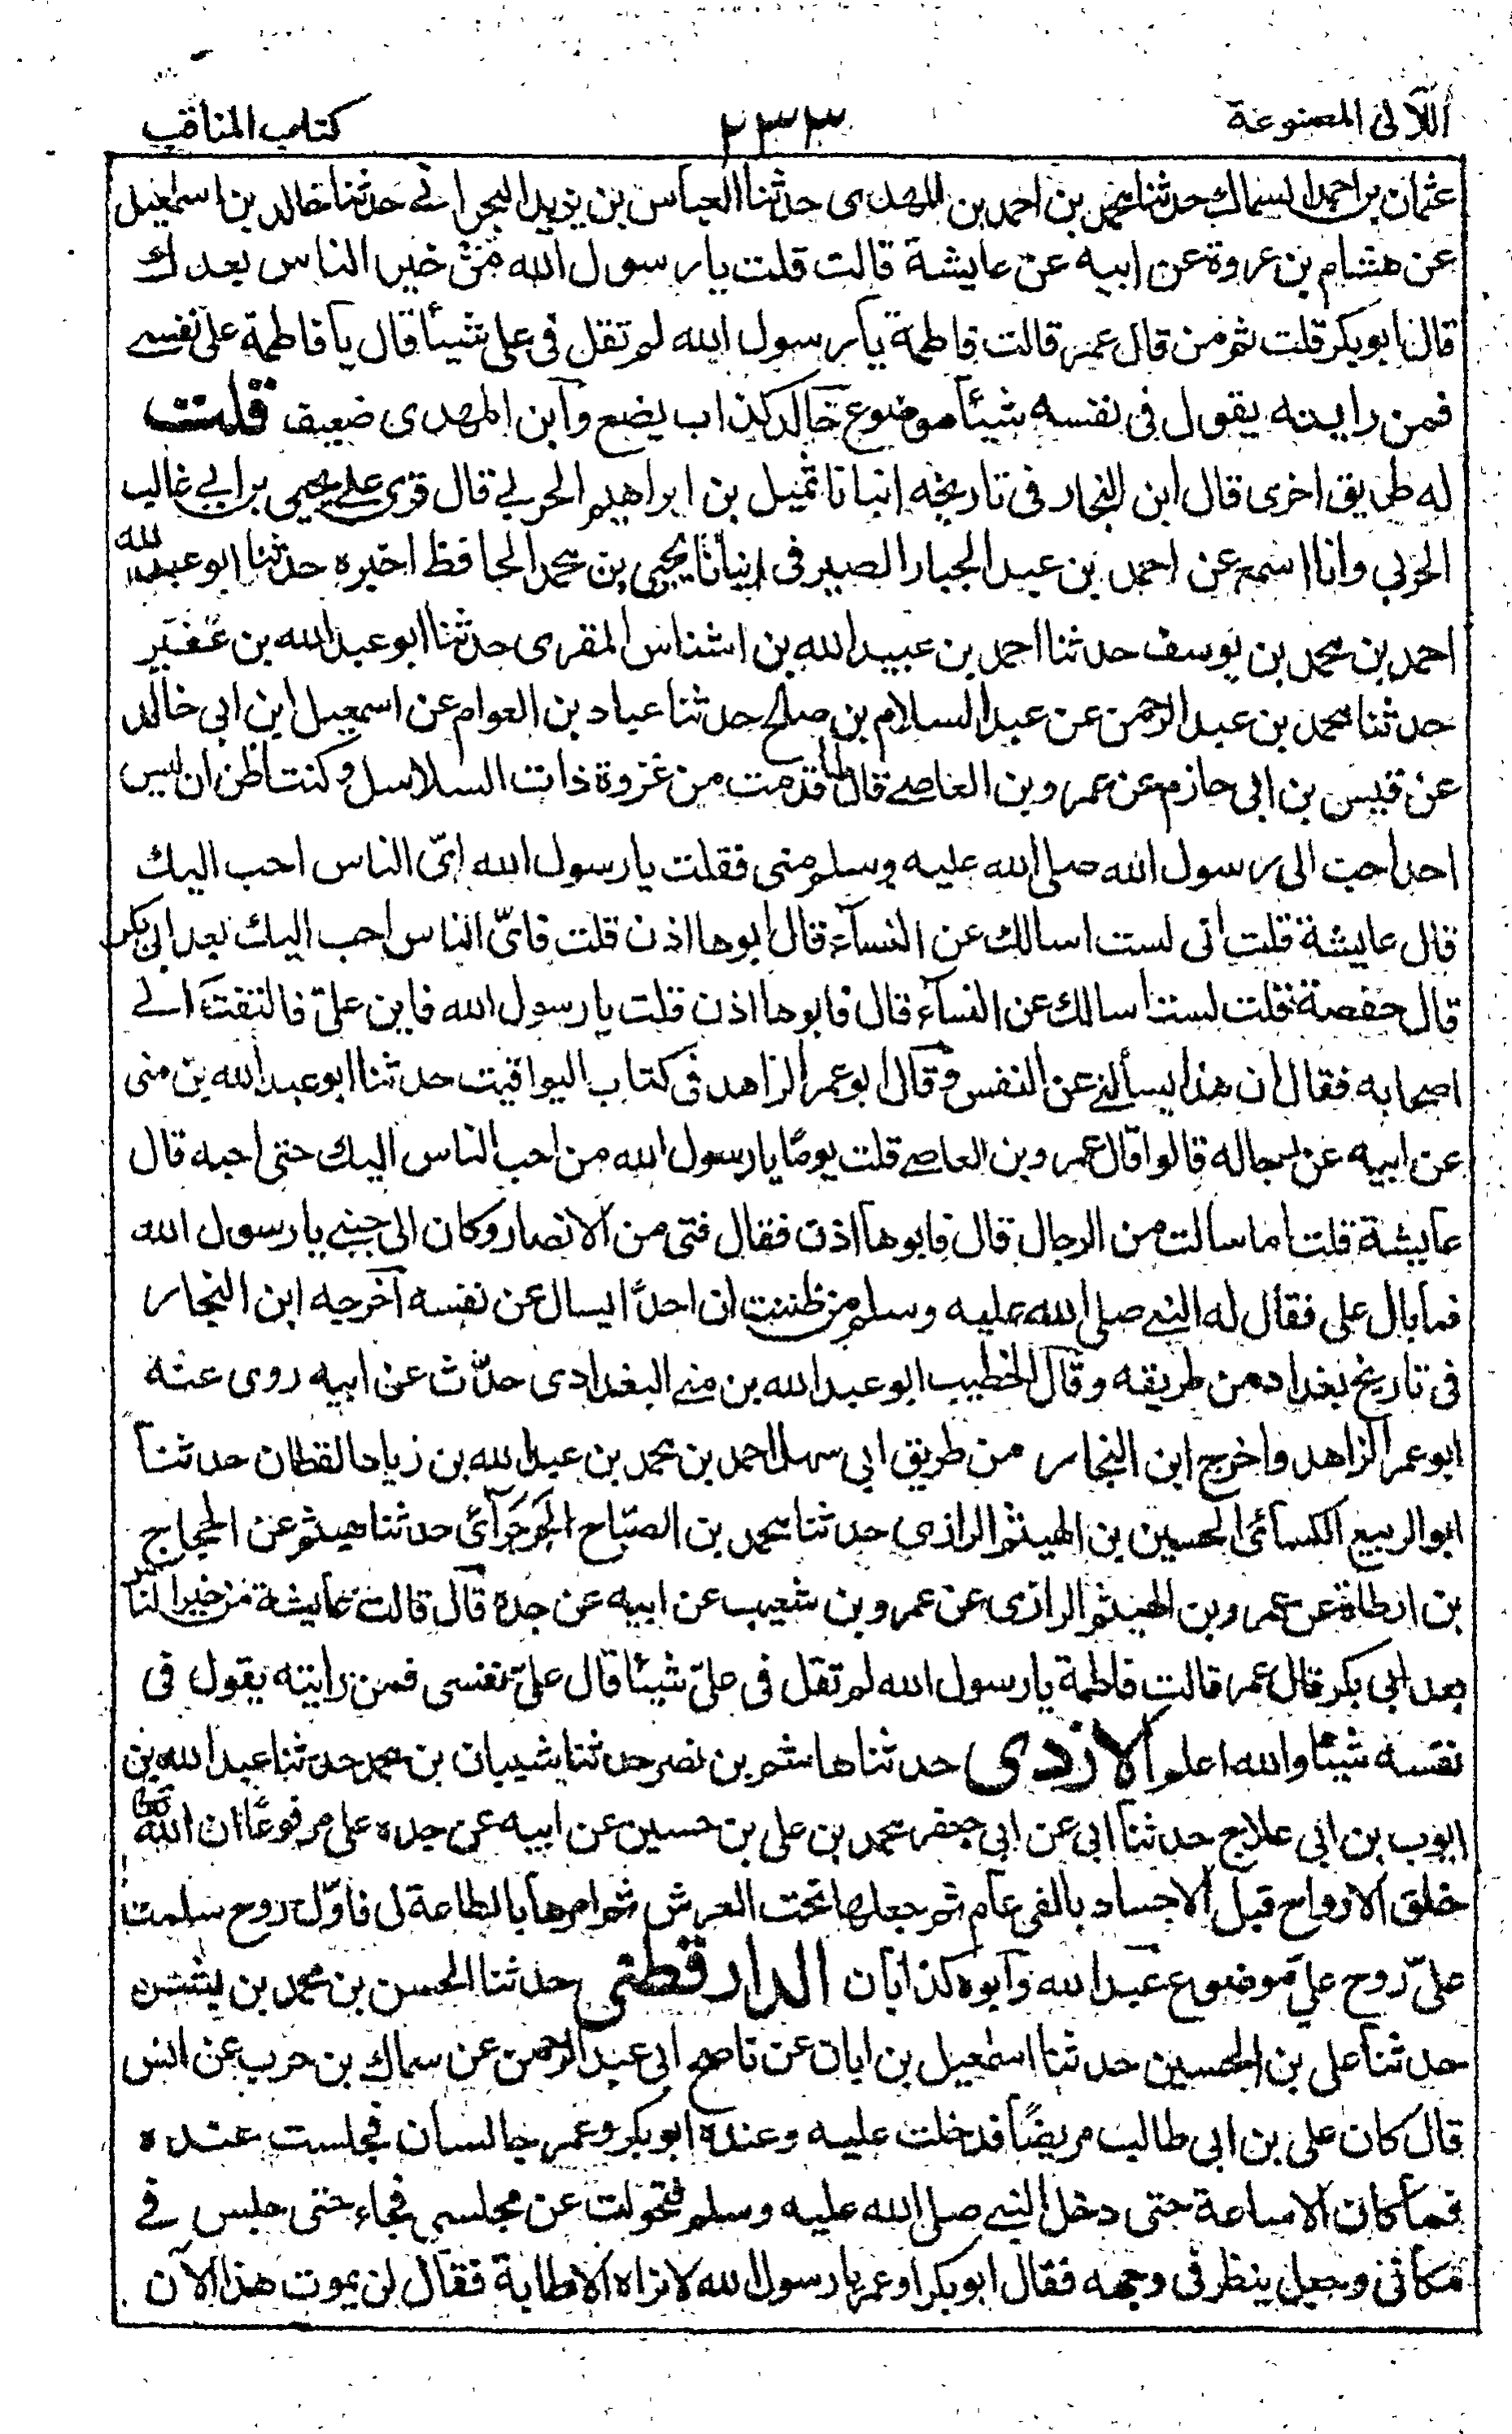 اللآلئ المصنوعة
٢٣٣
كتاب المناقب
عثمان بن احمد السماك حدثنا محمد بن احمد بن المهدى حدثنا العباس بن يزيد البحرانے حدثنا خالد بن اسمعيل
عن هشام بن عروة عن ابيه عن عايشة قالت قلت يا رسول الله من خير الناس بعدك
قال ابو بكر قلت ثم من قال عمر قالت فاطمة يا رسول الله لم تقل فى على شيئا قال يا فاطمة على نفسے
فمن رايته يقول فى نفسه شيئا موضوع خالد كذاب يضع وابن المهدى ضعيف قلت
له طريق اخرى قال ابن النجار فى تاريخه انبانا ثميل بن ابراهيم الحربے قال قرى علے يحيى بن ابے غالب
الحربى وانا اسمع عن احمد بن عبد الجبار الصيرفى انبأنا يحيى بن محمد الحافظ اخبره حدثنا ابو عبد الله
احمد بن محمد بن يوسف حدثنا احمد بن عبيد الله بن اشناس المقرى حدثنا ابو عبد الله بن عفير
حدثنا محمد بن عبد الرحمن عن عبد السلام بن صلح حدثنا عباد بن العوام عن اسمعيل ابن ابى خالد
عن قيس بن ابى حازم عن عمرو بن العاصے قال لما قدمت من غزوة ذات السلاسل وكنت اظن ان ليس
احد احب الى رسول الله صلى الله عليه وسلم منى فقلت يا رسول الله اىّ الناس احب اليك
قال عايشة قلت انى لست اسالك عن النسآء قال ابوها اذن قلت فاىّ الناس احب اليك بعد ابى بكر
قال حفصة قلت لست اسالك عن النسآء قال فابوها اذن قلت يا رسول الله فاين علىّ فالتفت الے
اصحابه فقال ان هذا يسألنے عن النفس وقال ابو عمر الزاهد فى كتاب اليواقيت حدثنا ابو عبد الله بن منى
عن ابيه عن رجاله قالوا قال عمرو بن العاصے قلت يومًا يا رسول الله من احب الناس اليك حتى احبه قال
عايشة قلت اما سالت من الرجال قال فابوها اذن فقال فتى من الانصار وكان الى جنبے يا رسول الله
فما بال على فقال له النبے صلى الله عليه وسلم من ظننت ان احدًا يسال عن نفسه آخرجه ابن النجار
فى تاريخ بغداد من طريقه وقال الخطيب ابو عبد الله بن منے البغدادى حدّث عن ابيه روى عنه
ابو عمر الزاهد واخرج ابن النجار من طريق ابى سهل احمد بن محمد بن عبد الله بن زياد القطان حدثنا
ابو الربيع الكسائى الحسين بن الهيثم الرازى حدثنا محمد بن الصبّاح الجَرجَرآئى حدثنا هيثم عن الحجاج
بن ارطاة عن عمرو بن الهيثم الرازى عن عمرو بن شعيب عن ابيه عن جده قال قالت عايشة من خير الناس
بعد ابى بكر قال عمر قالت فاطمة يا رسول الله لم تقل فى علىّ شيئا قال علىّ نفسى فمن رايته يقول فى
نفسه شيئًا والله اعلم الازدى حدثنا هاشم بن نصر حدثنا شيبان بن محمد حدثنا عبد الله بن
ايوب بن ابى علاج حدثنا ابى عن ابى جعفر محمد بن على بن حسين عن ابيه عن جده على مرفوعًا ان الله تعا
خلق الارواح قبل الاجساد بالفى عام ثم جعلها تحت العرش ثم امرها بالطاعة لى فاوّل روح سلمت
علىّ روح علىّ موضوع عبد الله وآبوه كذابان الدارقطنى حدثنا الحسن بن محمد بن بشر
حدثنا على بن الحسين حدثنا اسمعيل بن ابان عن ناصح ابى عبد الرحمن عن سماك بن حرب عن انس
قال كان على بن ابى طالب مريضًا فدخلت عليه وعنده ابو بكر وعمر جالسان فجلست عنده
فما كان الا ساعة حتى دخل النبے صلى الله عليه وسلم فتحولت عن مجلسى فجاء حتى جلس فى
مكانى وجعل ينظر فى وجهه فقال ابو بكر او عمر يا رسول الله لا نراه الا مطابة فقال لن يموت هذا الآن